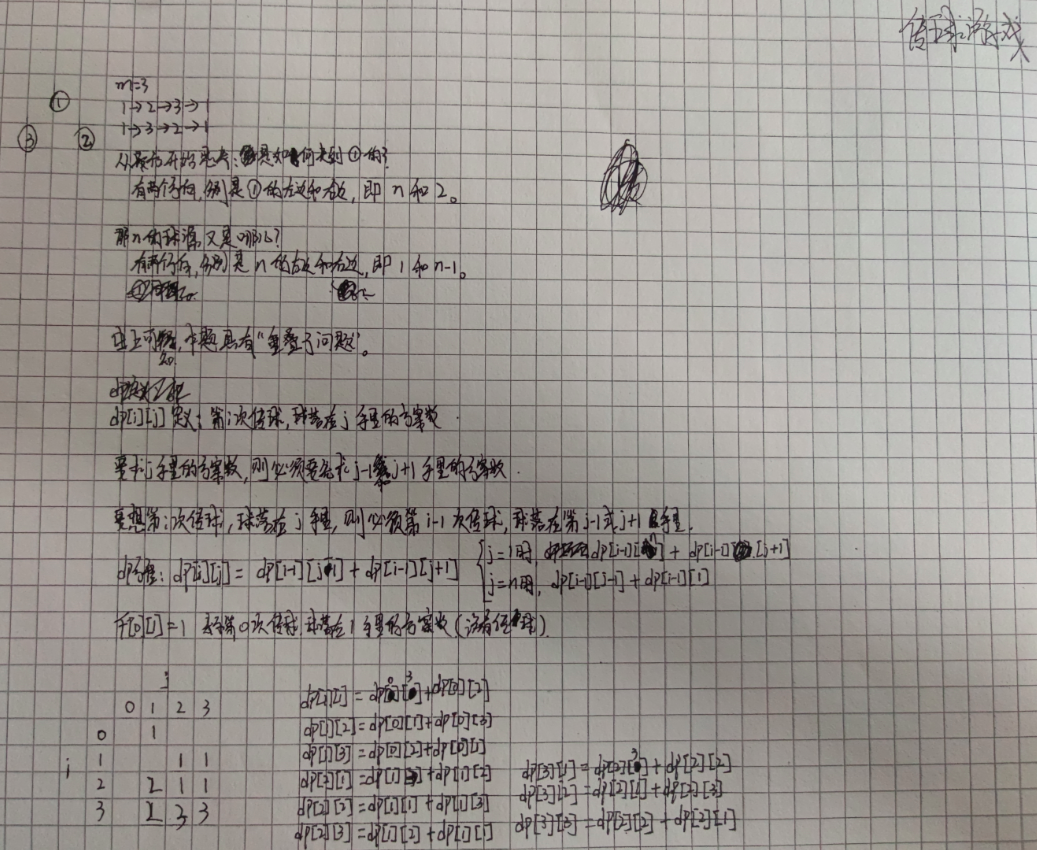 传球游戏
m=3
① 1→2→3→1
③ ② 1→3→2→1
从最后开始思考：是如何来到①的？
有两个方向，分别是①的左边和右边，即 n 和 2。
那 n 的球源又是哪儿？
有两个方向，分别是 n 的左边和右边，即 1 和 n-1。
由上可知，本题具有"重叠子问题"。
dp[i][j] 定义：第i次传球，球落在 j 手里的方案数
要求 j 手里的方案数，则必须要先求 j-1 和 j+1 手里的方案数.
要想第i次传球，球落在 j 手里，则必须第 i-1 次传球，球落在第 j-1 或 j+1 手里.
dp方程：dp[i][j] = dp[i-1][j-1] + dp[i-1][j+1]
j=1时，dp[i-1][n] + dp[i-1][j+1]
j=n时，dp[i-1][j-1] + dp[i-1][1]
f[0][1]=1 表示第0次传球，球落在 1 手里的方案数（没有传球）
j
0 1 2 3
0 1
i 1 1 1
2 2 1 1
3 2 3 3
dp[1][1] = dp[0][3]+dp[0][2]
dp[1][2] = dp[0][1]+dp[0][3]
dp[1][3] = dp[0][2]+dp[0][1]
dp[2][1] = dp[1][3]+dp[1][2]
dp[2][2] = dp[1][1]+dp[1][3]
dp[2][3] = dp[1][2]+dp[1][1]
dp[3][1] = dp[2][3]+dp[2][2]
dp[3][2] = dp[2][1]+dp[2][3]
dp[3][3] = dp[2][2]+dp[2][1]